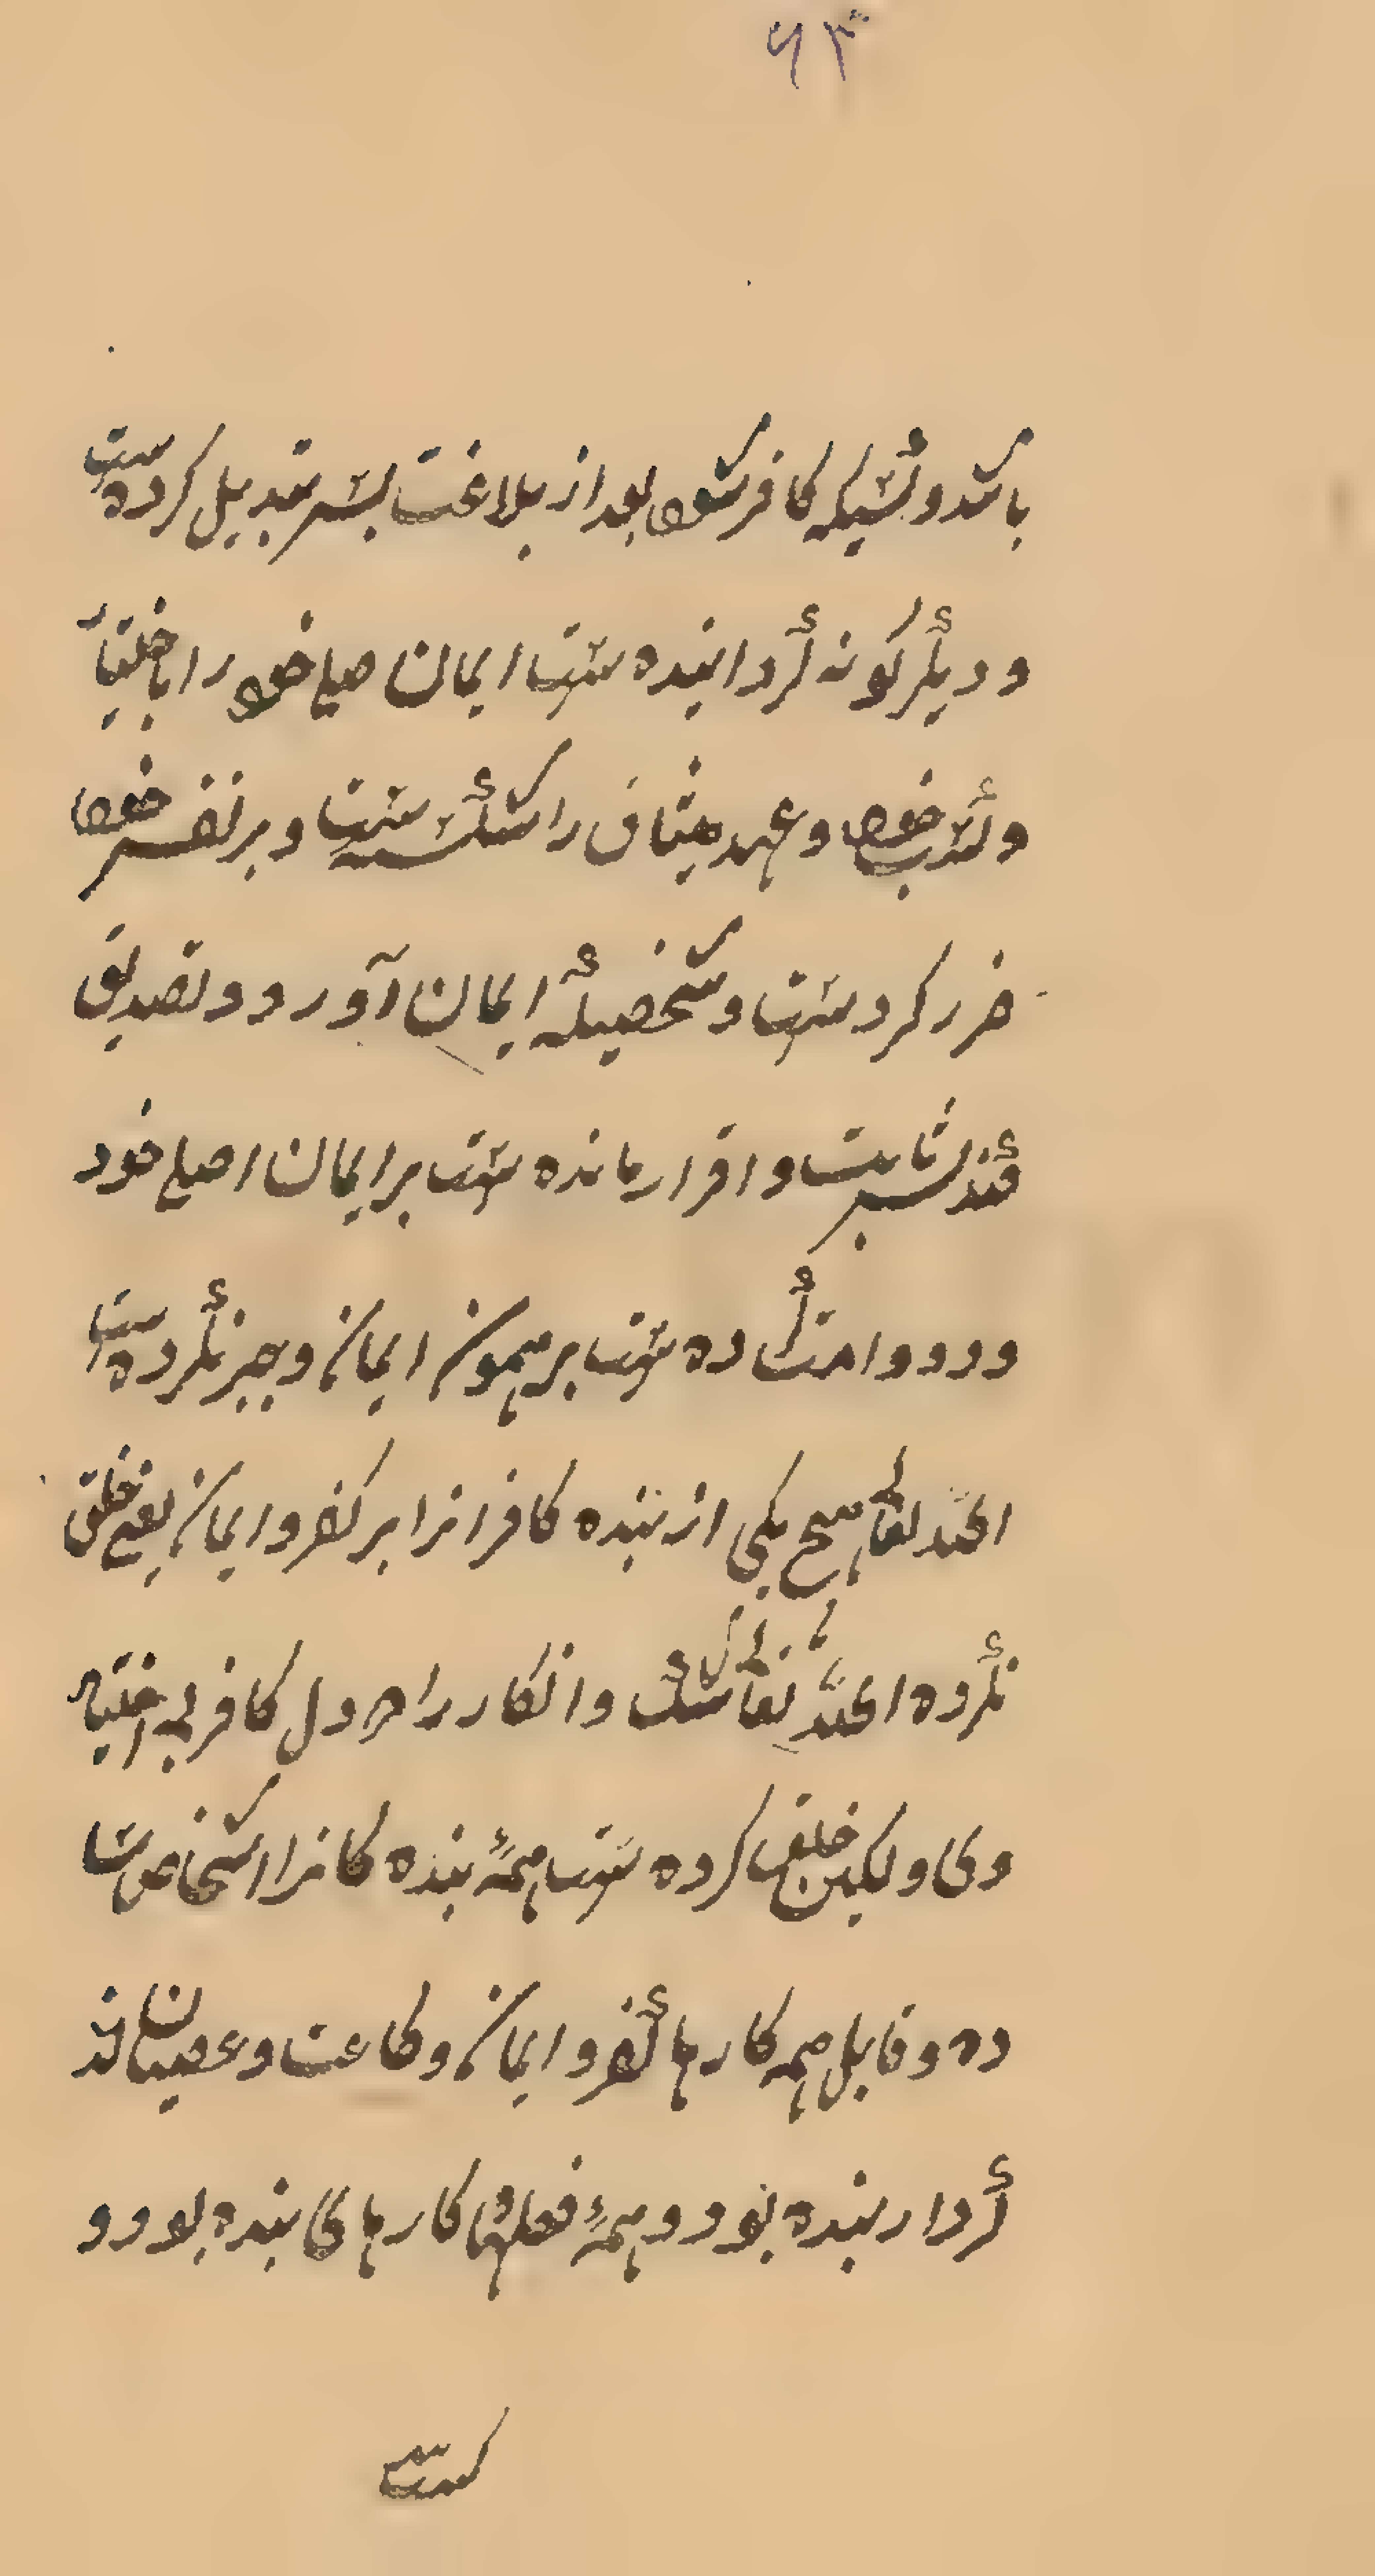 ۶۳
باشد و کسیکه کافر شود بعد از بلاغت پس تبدیل کرده ست
و دیگر گونه گردانیده ست ایمان اصلی خود را باختیار
و کسب خود و عهد میثاق را شکسته ست و بر نفس خود
ضرر کرد ست و شخصیکه ایمان آورد و تصدیق
کند پس ثابت و اقرار مانده ست بر ایمان اصلی خود
و دوام کرده ست بر همون ایمان و جبر نکرده ست
الله تعالی هیچ یکی از بنده کافرانرا بر کفر و ایمان یعنی خلق
نکرده الله تعالی شک و انکار را در دل کافر بی اختیار
وی ولیکن خلق کرده ست همهٔ بنده کانرا اشخاص سا
ده و قابل همه کارها کفر و ایمان و طاعت و عصیان اند
کردار بنده بود و همهٔ فعلها کارهای بنده بود و
کسب